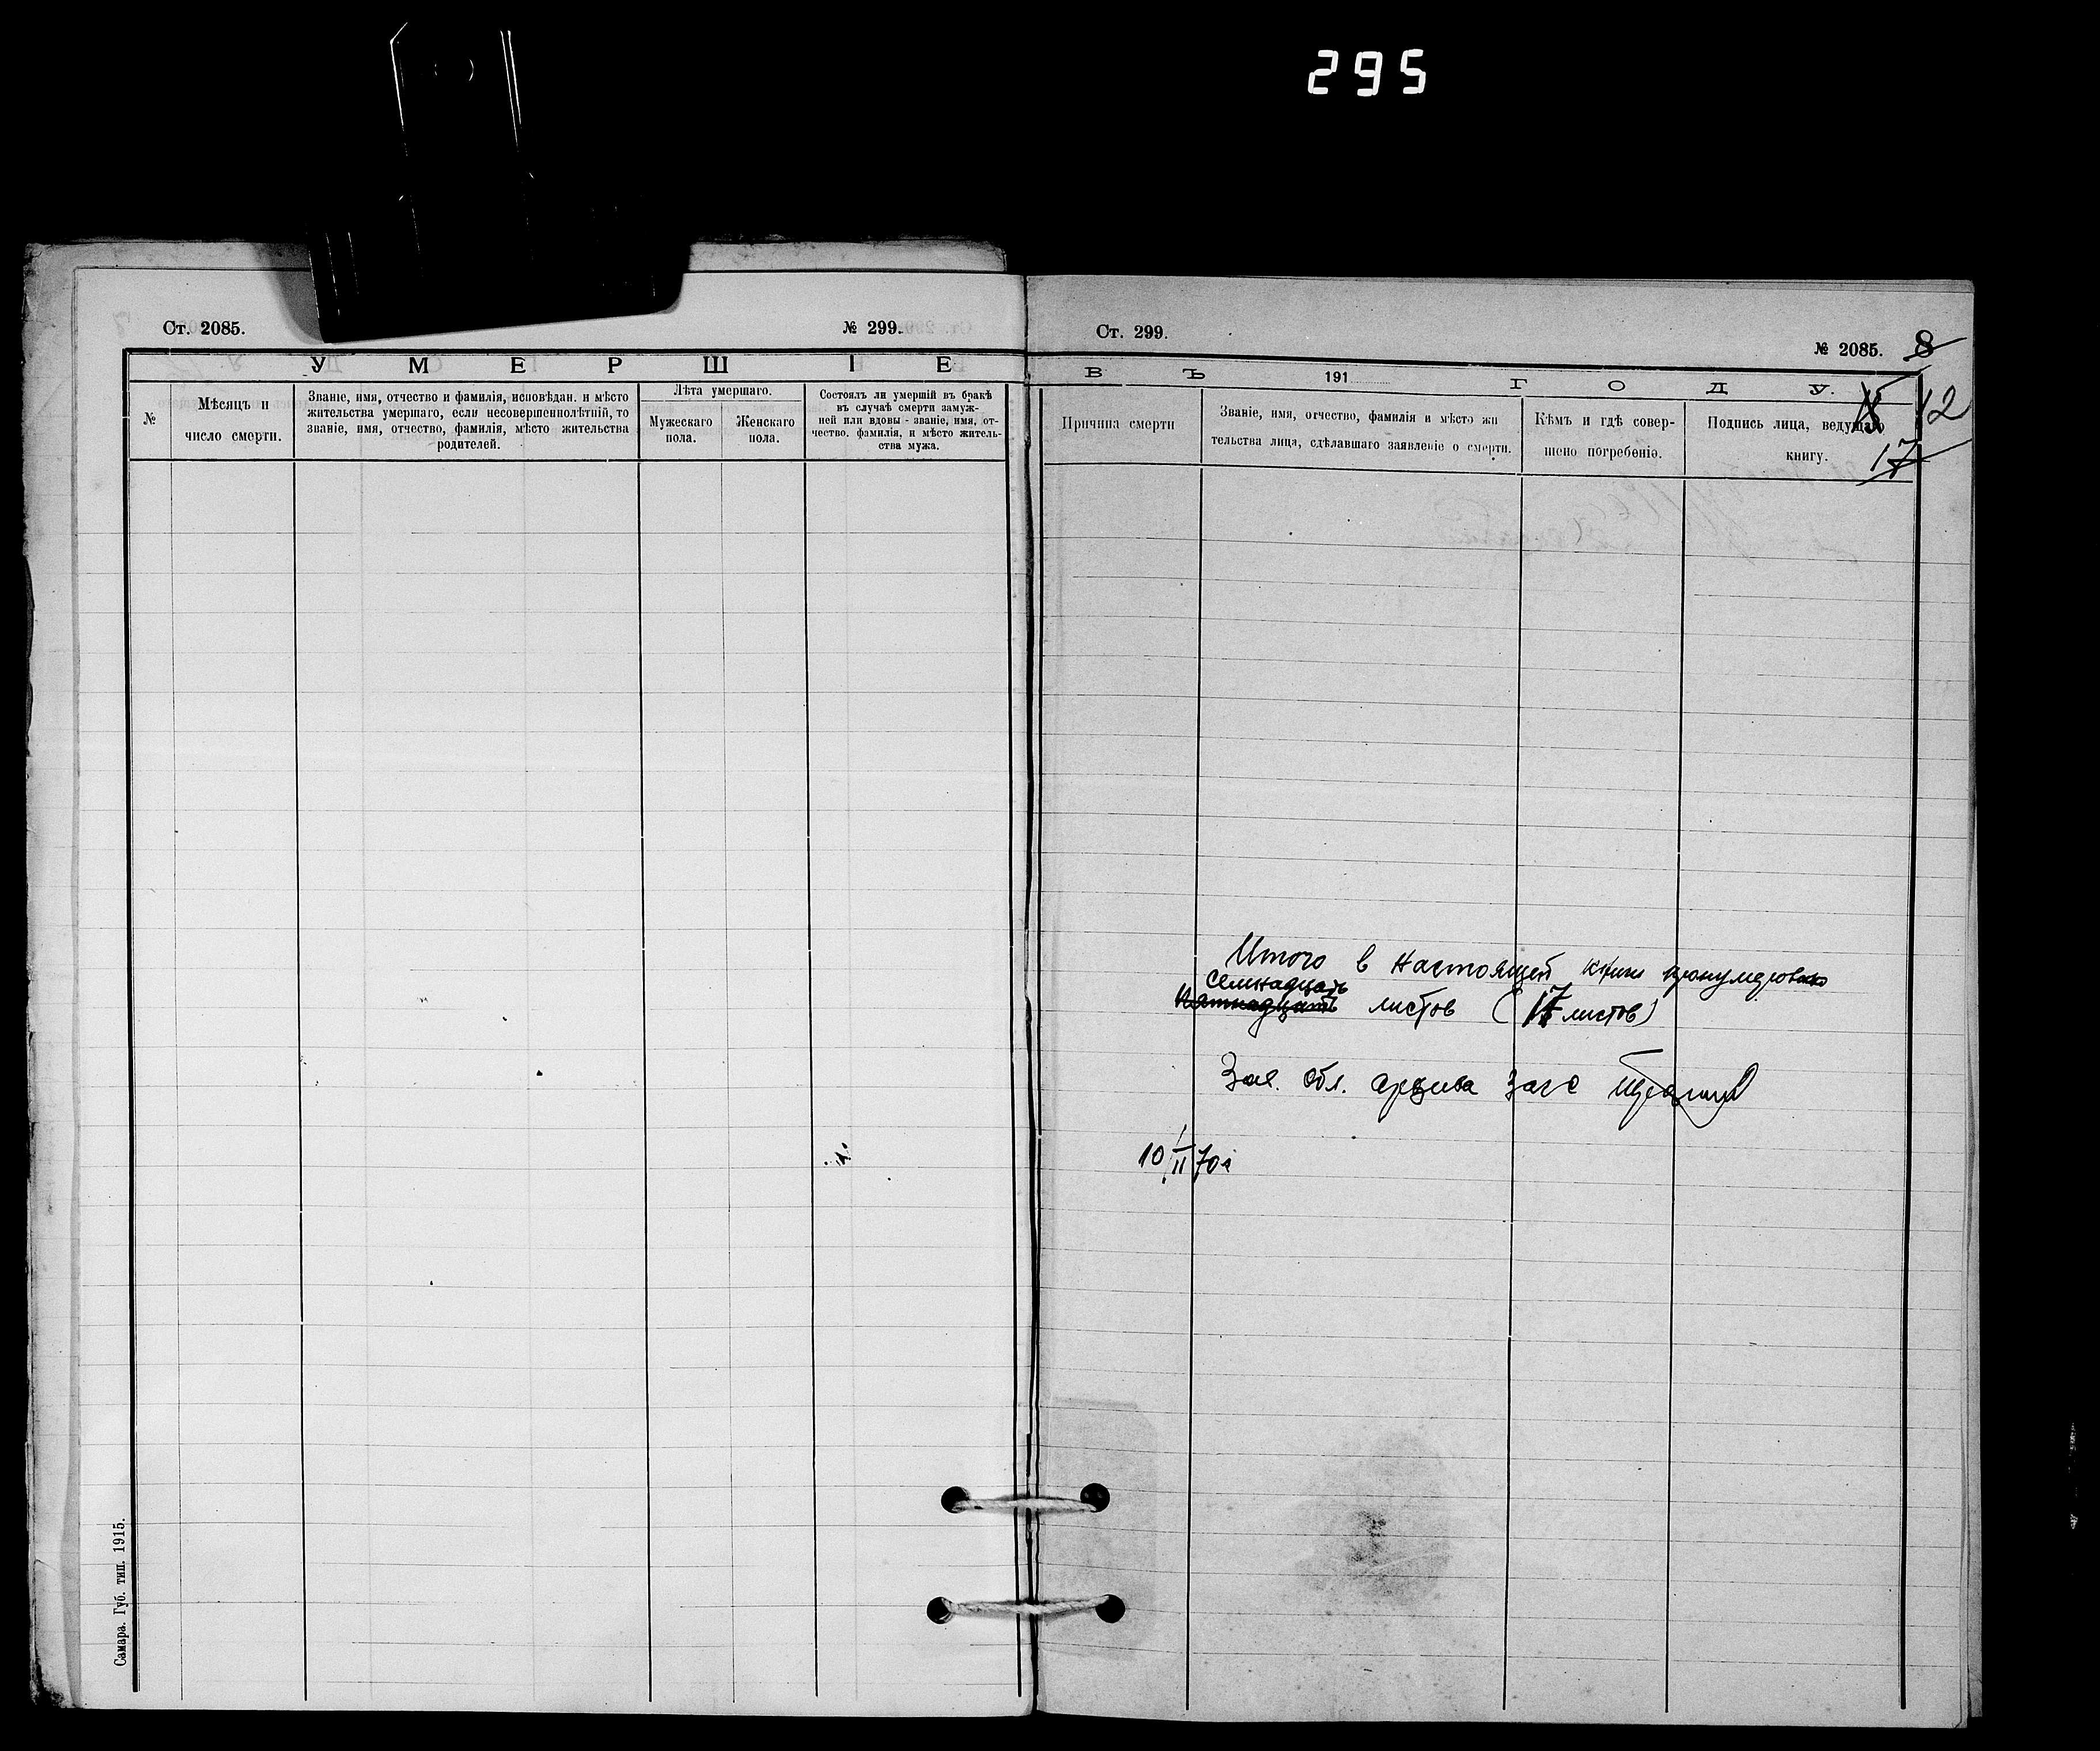 295
Ст. 2085.
№ 299.
У М Е Р Ш І Е
№
Мѣсяцъ и
число смерти.
Званіе, имя, отчество и фамилія, исповѣдан. и мѣсто
жительства умершаго, если несовершеннолѣтній, то
званіе, имя, отчество, фамилія, мѣсто жительства
родителей.
Лѣта умершаго.
Мужескаго
пола.
Женскаго
пола.
Состоялъ ли умершій въ бракѣ
въ случаѣ смерти замуж-
ней или вдовы - званіе, имя, от-
чество. фамилія, и мѣсто житель-
ства мужа.
Самара. Губ. тип. 1915.
Ст. 299.
№ 2085.
8
В Ъ 191 Г О Д У.
12
17
Причина смерти
Званіе, имя, отчество, фамилія и мѣсто жи
тельства лица, сдѣлавшаго заявленіе о смерти.
Кѣмъ и гдѣ совер-
шено погребеніе.
Подпись лица, ведущаго
книгу.
Итого в настоящей книге пронумеровано
семнадцать
пятнадцать листов (17 листов)
Зав. обл. архива загс
10/II 70г